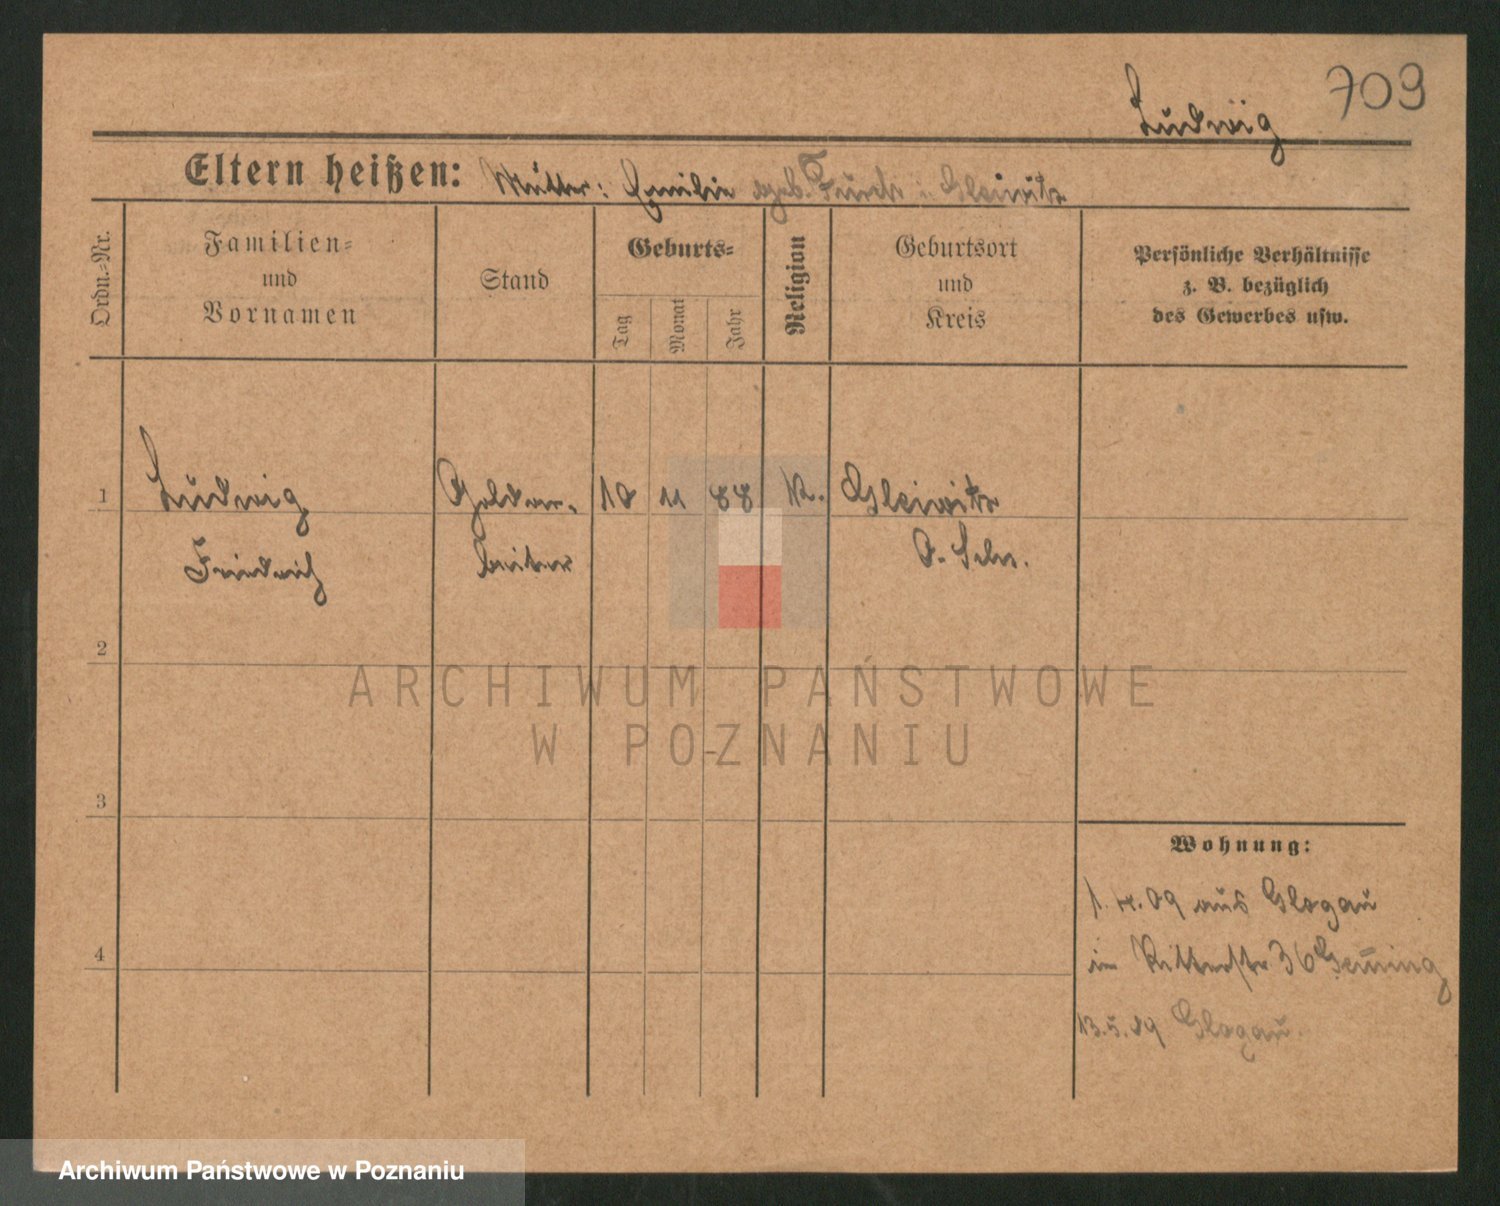 709
Ludwig
Eltern heißen: Mutter: Emilie geb. Turck i. Gleiwitz
Ordn.=Nr.
Familien=
und
Vornamen
Stand
Geburts=
Tag
Monat
Jahr
Religion
Geburtsort
und
Kreis
Persönliche Verhältnisse
z. B. bezüglich
des Gewerbes usw.
1 Ludwig Goldar- 10 11 88 K. Gleiwitz
Friedrich beiter O. Schl.
2
ARCHIWUM PAŃSTWOWE
W POZNANIU
3
Wohnung:
1.4.09 aus Glogau
in Ritterstr 36
4
13.5.09 Glogau.
Archiwum Państwowe w Poznaniu